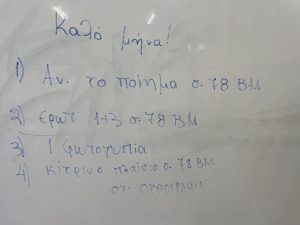 Καλό μήνα!
1) Αν. το ποίημα σ.78 ΒΜ
2) Ερωτ 1+3 σ.78 ΒΜ
3) 1 φωτοτυπία
4) Κίτρινο πλαίσιο σ. 78 ΒΜ
ΟΧΙ ΟΡΘΟΓΡΑΦΙΑ